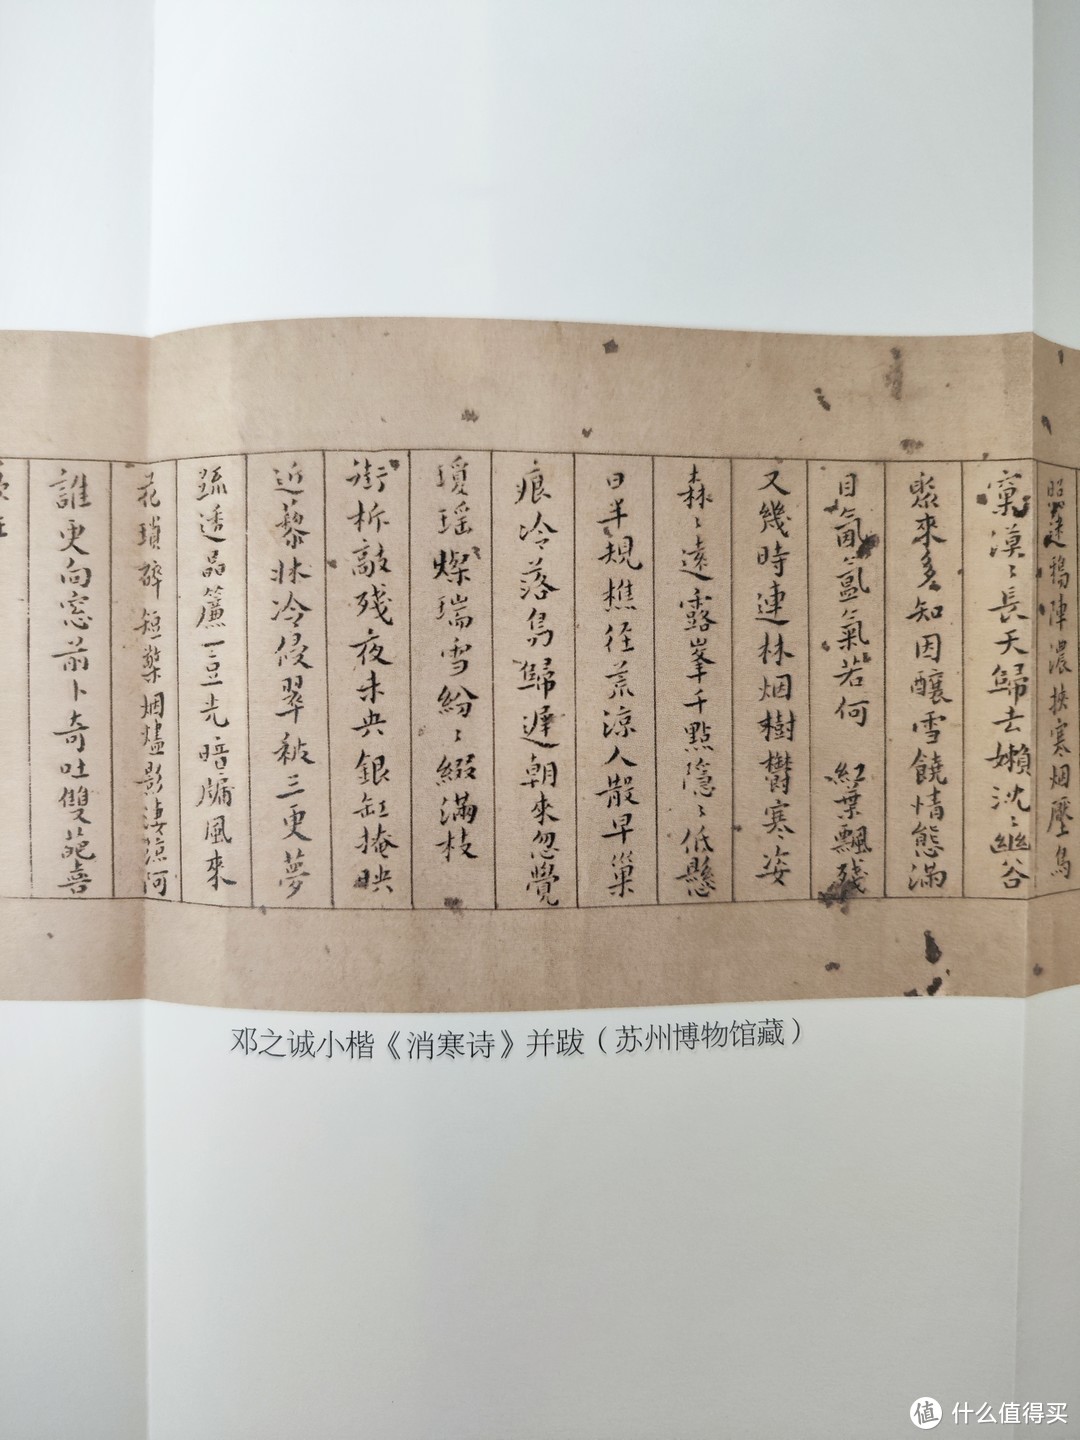 迷鴉陣濃挟寒烟壓烏
窠漠〻長天歸去嬾沈〻幽谷
聚來多知因釀雪饒情態滿
目氤氳氣若何 紅葉飄殘
又幾時連林烟樹欝寒姿
森〻遠露峯千點隱〻低懸
日半規樵径荒涼人散早巢
痕冷落鳥歸遲朝來忽覺
瓊瑶燦瑞雪紛〻綴滿枝
街柝敲殘夜未央銀缸掩映
近藜牀冷侵翠被三更夢
疏透晶簾一豆光暗牖風來
花瑣碎短檠烟燼影淒涼何
誰更向窓前卜奇吐雙葩喜
邓之诚小楷《消寒诗》并跋（苏州博物馆藏）
值 什么值得买